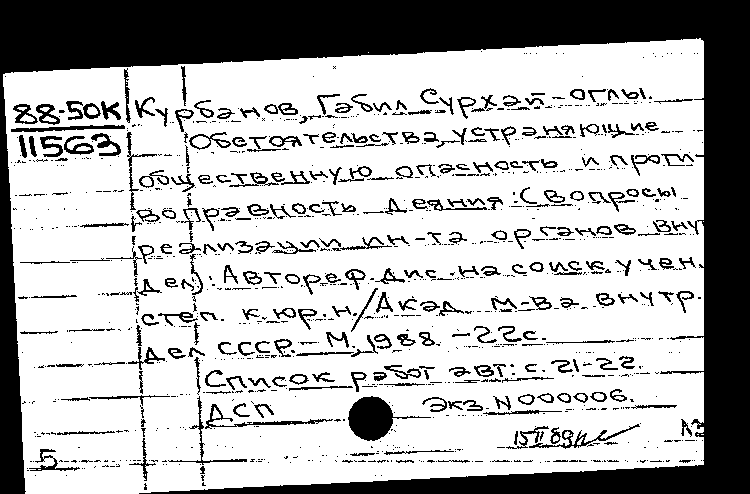 88-50К Курбанов, Габил Сурхай-оглы.
11563 Обстоятельства, устраняющие
общественную опасность и проти-
воправность деяния: (Вопросы
реализации ин-та органов внут
дел): Автореф. дис. на соиск. учен.
степ. к.юр.н./Акад. м-ва внутр.
дел СССР. - М., 1988. - 22с.
Список работ авт.: с. 21-22.
ДСП Экз. N 000006.
15 II 89
5